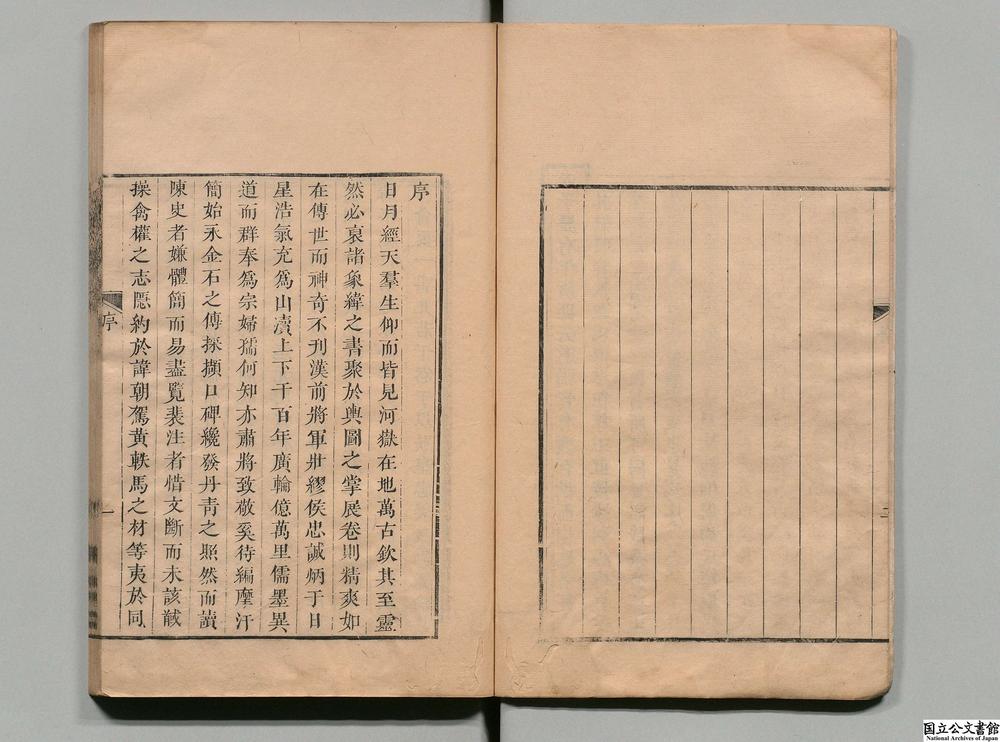 序
日月經天羣生仰而皆見河嶽在地萬古欽其至靈
然必裒諸象緯之書聚於輿圖之掌展卷則精爽如
在傳世而神奇不刊漢前將軍壯繆侯忠誠炳于日
星浩氣充爲山瀆上下千百年廣輪億萬里儒墨異
道而群奉爲宗婦孺何知亦肅將致敬奚待編摩汗
簡始永金石之傳採擷口碑纔發丹青之照然而讀
陳史者嫌體簡而易盡覽裴注者惜文斷而未該瀻
操禽權之志隱約於諱朝駕黃軼馬之材等夷於同
序
一
二
国立公文書館
National Archives of Japan